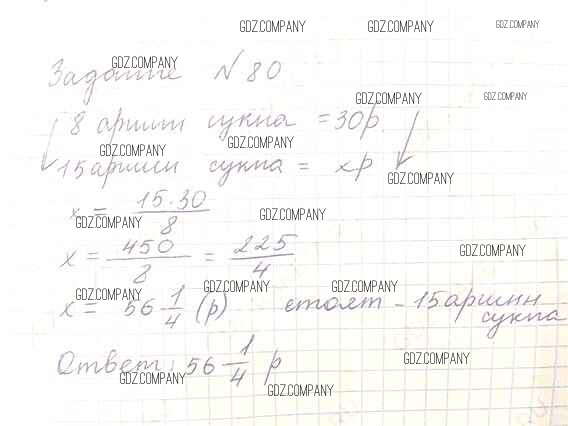 GDZ.COMPANY GDZ.COMPANY GDZ.COMPANY
GDZ.COMPANY
Задание № 80
GDZ.COMPANY GDZ.COMPANY
8 аршин сукна = 30р.
GDZ.COMPANY GDZ.COMPANY
15 аршин сукна = xр
GDZ.COMPANY
x = 15·30/8
GDZ.COMPANY GDZ.COMPANY
x = 450/8 = 225/4
GDZ.COMPANY
GDZ.COMPANY GDZ.COMPANY GDZ.COMPANY
x = 56 1/4 (р) стоят - 15 аршин
сукна
GDZ.COMPANY
Ответ: 56 1/4 р
GDZ.COMPANY
GDZ.COMPANY